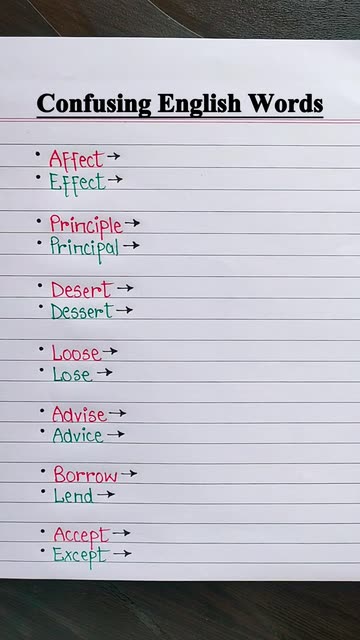 Confusing English Words
• Affect →
• Effect →
• Principle →
• Principal →
• Desert →
• Dessert →
• Loose →
• Lose →
• Advise →
• Advice →
• Borrow →
• Lend →
• Accept →
• Except →